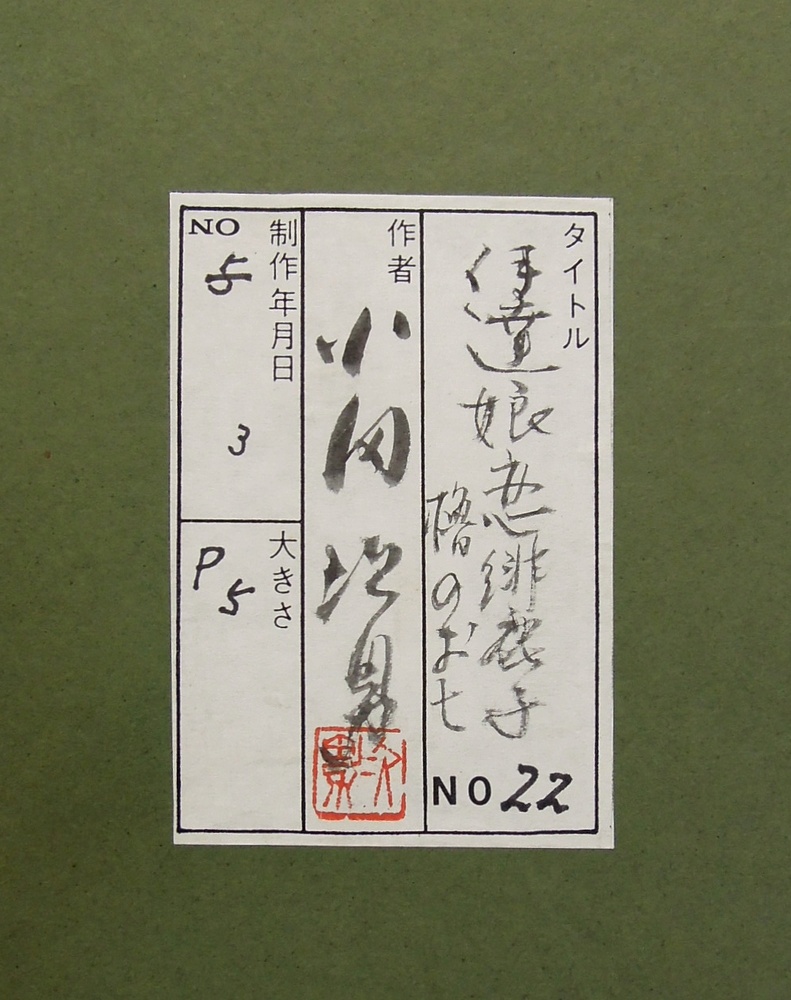 タイトル
伊達娘恋緋鹿子
櫓のお七
NO 22
作者
小田切男
制作年月日
NO
5
3
大きさ
P5